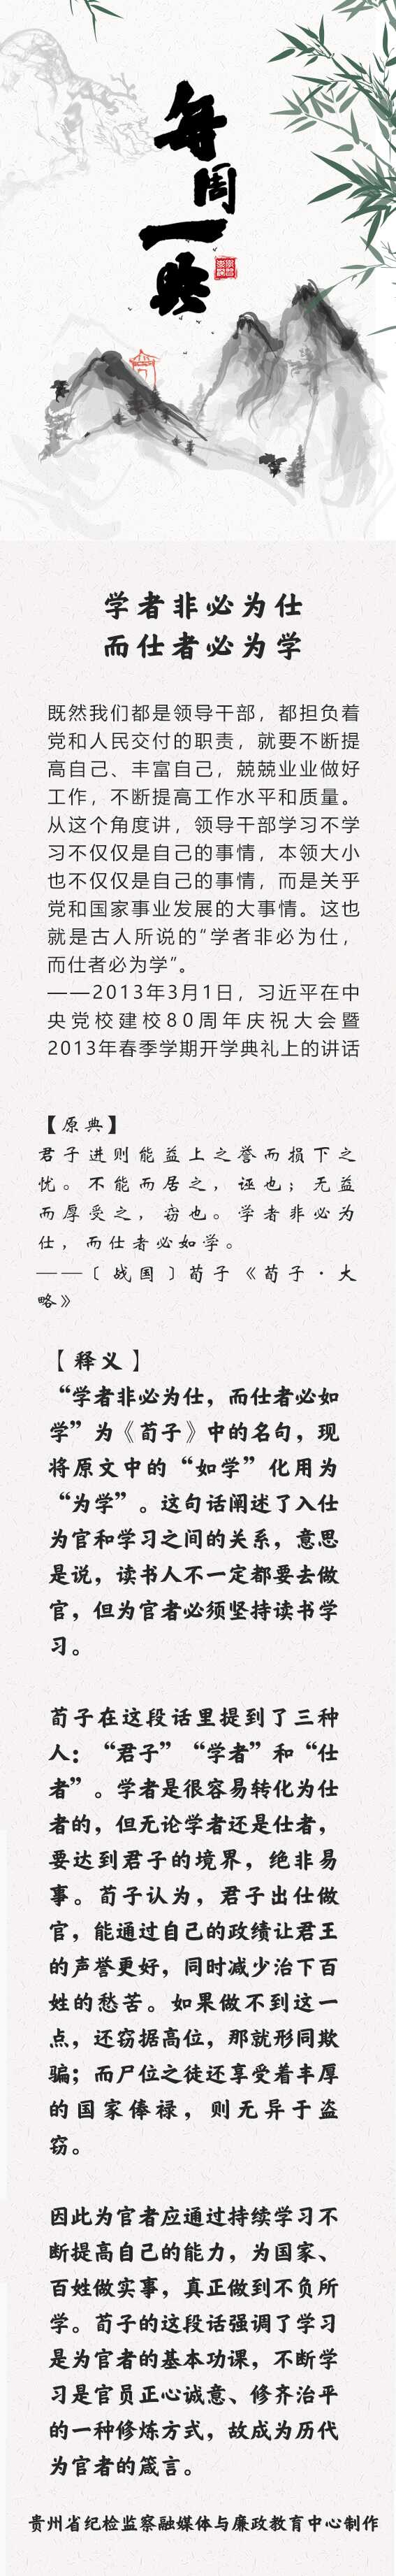 每
周
一
典
学者非必为仕
而仕者必为学
既然我们都是领导干部，都担负着
党和人民交付的职责，就要不断提
高自己、丰富自己，兢兢业业做好
工作，不断提高工作水平和质量。
从这个角度讲，领导干部学习不学
习不仅仅是自己的事情，本领大小
也不仅仅是自己的事情，而是关乎
党和国家事业发展的大事情。这也
就是古人所说的“学者非必为仕，
而仕者必为学”。
——2013年3月1日，习近平在中
央党校建校80周年庆祝大会暨
2013年春季学期开学典礼上的讲话
【原典】
君子进则能益上之誉而损下之
忧。不能而居之，诬也；无益
而厚受之，窃也。学者非必为
仕，而仕者必如学。
——〔战国〕荀子《荀子·大
略》
【释义】
“学者非必为仕，而仕者必如
学”为《荀子》中的名句，现
将原文中的“如学”化用为
“为学”。这句话阐述了入仕
为官和学习之间的关系，意思
是说，读书人不一定都要去做
官，但为官者必须坚持读书学
习。
荀子在这段话里提到了三种
人：“君子”“学者”和“仕
者”。学者是很容易转化为仕
者的，但无论学者还是仕者，
要达到君子的境界，绝非易
事。荀子认为，君子出仕做
官，能通过自己的政绩让君王
的声誉更好，同时减少治下百
姓的愁苦。如果做不到这一
点，还窃据高位，那就形同欺
骗；而尸位之徒还享受着丰厚
的国家俸禄，则无异于盗
窃。
因此为官者应通过持续学习不
断提高自己的能力，为国家、
百姓做实事，真正做到不负所
学。荀子的这段话强调了学习
是为官者的基本功课，不断学
习是官员正心诚意、修齐治平
的一种修炼方式，故成为历代
为官者的箴言。
贵州省纪检监察融媒体与廉政教育中心制作